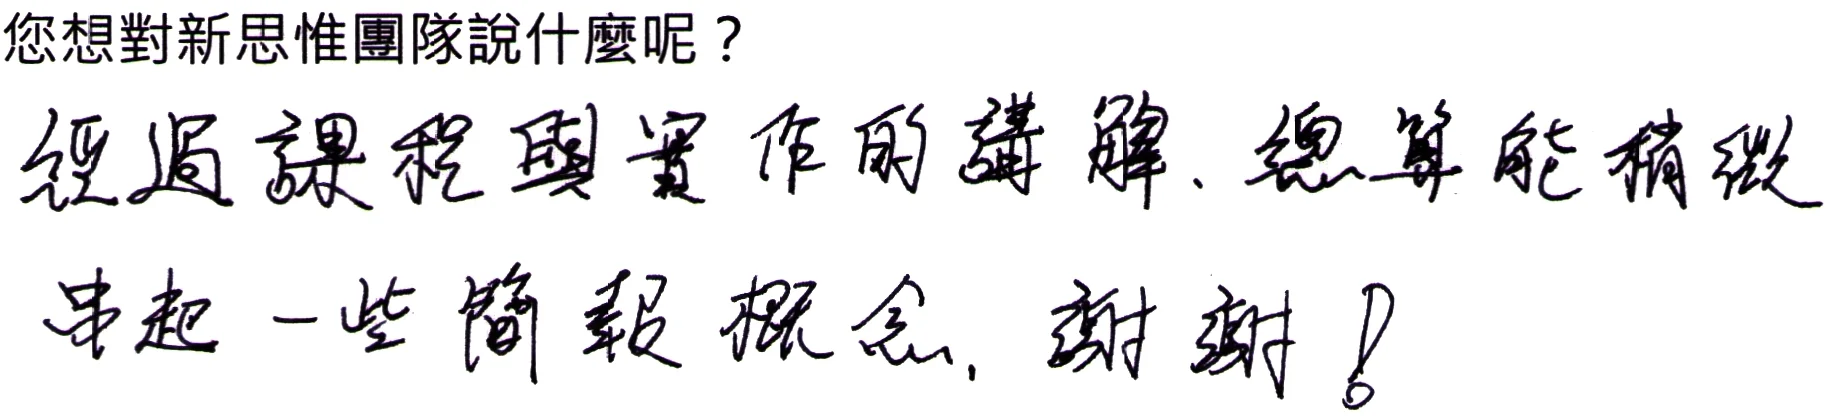 您想對新思惟團隊說什麼呢？
經過課程與實作的講解、總算能稍微
串起一些簡報概念，謝謝！